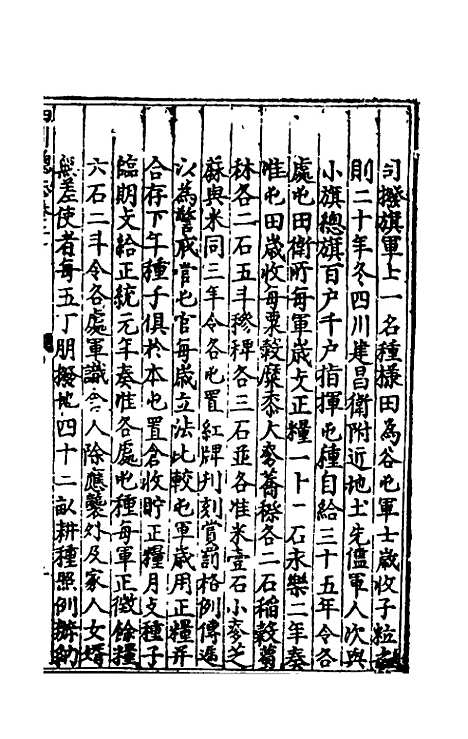 司撥旗軍上一名種樣田為各屯軍士歲收子粒
則二十年冬四川建昌衛附近地土先儘軍人次與
小旗總旗百户千户指揮屯種自給三十五年令各
處屯田衛所每軍歲支正糧一十二石永樂二年奏
准屯田歲收每粟穀糜黍大麥蕎穄各二石稻穀薥
秫各二石五斗穇稗各三石並各准米壹石小麥芝
蔴與米同三年令各屯置紅牌刊刻賞罰格例傳遍
以為警戒管屯官每歲立法比較屯軍歲用正糧并
合存下年種子俱於本屯置倉收貯正糧月支種子
臨期支給正統元年奏准各處屯種每軍正徵餘糧
六石二斗令各處軍識舍人除應襲外及家人女壻
無差使者每五丁朋撥地四十二畝耕種照例辦納
四川總志卷二